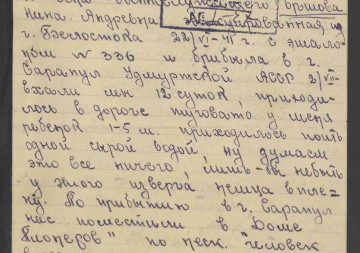 Нина Андревна эвакуированная из
г. Белостока 22/VI-41 г. с эшало-
ном № 336 и прибыла в г.
Сарапул Удмуртской АССР 2/VII-
ехали мы 12 суток, приходи-
лось в дороге туговато у меня
ребенок 1-5 м. приходилось поить
одной сырой водой, ну думаем
это все ничего, лишь-бы небыть
у этого изверга немца в пле=
ну. По прибытию в г. Сарапул
нас поместили в Доме
Пионеров" по песк. "человек